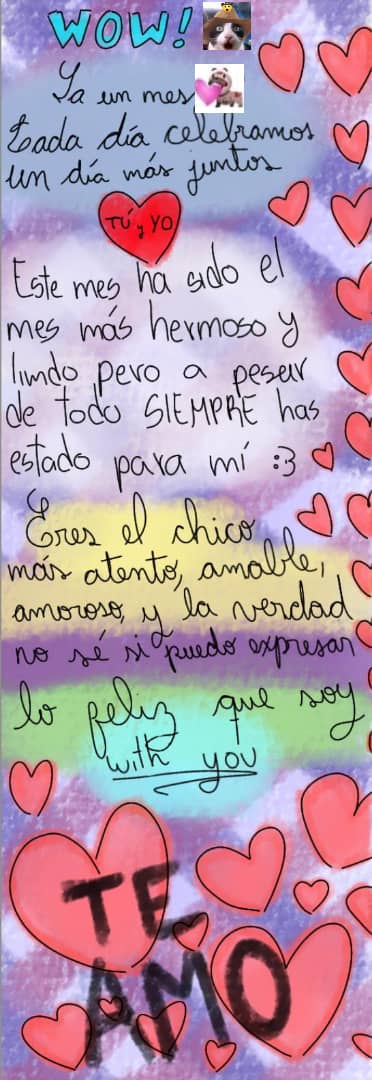 WOW!
Ya un mes
Cada día celebramos
un día más juntos
TÚ y YO
Este mes ha sido el
mes más hermoso y
lindo pero a pesar
de todo SIEMPRE has
estado para mí :3
Eres el chico
más atento, amable,
amoroso, y la verdad
no sé si puedo expresar
lo feliz que soy
with you
TE
AMO